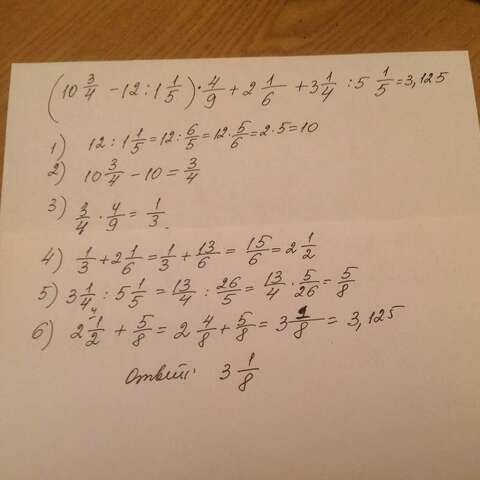 (10 3/4 - 12 : 1 1/5) · 4/9 + 2 1/6 + 3 1/4 : 5 1/5 = 3,125
1) 12 : 1 1/5 = 12 : 6/5 = 12 · 5/6 = 2 · 5 = 10
2) 10 3/4 - 10 = 3/4
3) 3/4 · 4/9 = 1/3
4) 1/3 + 2 1/6 = 1/3 + 13/6 = 15/6 = 2 1/2
5) 3 1/4 : 5 1/5 = 13/4 : 26/5 = 13/4 · 5/26 = 5/8
6) 2 1/2 + 5/8 = 2 4/8 + 5/8 = 3 1/8 = 3,125
Ответ: 3 1/8